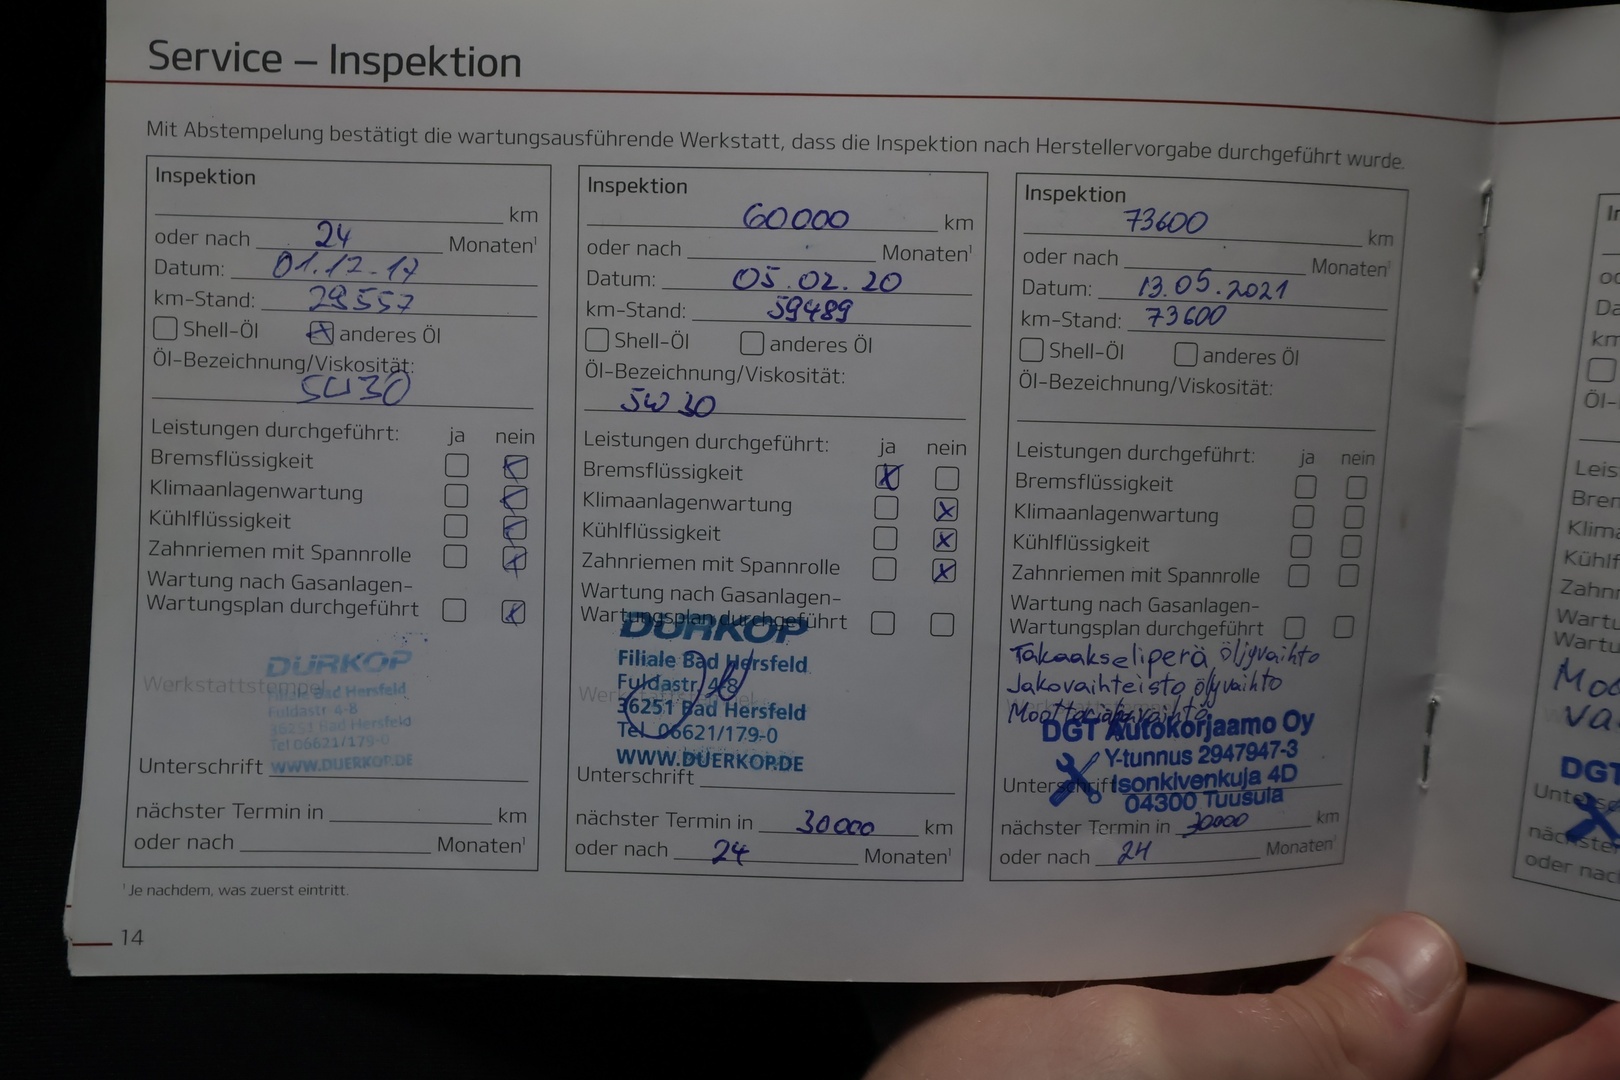 Service – Inspektion
Mit Abstempelung bestätigt die wartungsausführende Werkstatt, dass die Inspektion nach Herstellervorgabe durchgeführt wurde.
Inspektion
km
oder nach 24 Monaten¹
Datum: 01.12.17
km-Stand:
Shell-Öl anderes Öl
Öl-Bezeichnung/Viskosität:
5W30
Leistungen durchgeführt: ja nein
Bremsflüssigkeit
Klimaanlagenwartung
Kühlflüssigkeit
Zahnriemen mit Spannrolle
Wartung nach Gasanlagen-
Wartungsplan durchgeführt
DÜRKOP
Werkstattstempel
Filiale Bad Hersfeld
Fuldastr. 4-8
36251 Bad Hersfeld
Tel 06621/179-0
WWW.DUERKOP.DE
Unterschrift
nächster Termin in km
oder nach Monaten¹
Inspektion
60000 km
oder nach Monaten¹
Datum: 05.02.20
km-Stand: 59489
Shell-Öl anderes Öl
Öl-Bezeichnung/Viskosität:
5W30
Leistungen durchgeführt: ja nein
Bremsflüssigkeit
Klimaanlagenwartung
Kühlflüssigkeit
Zahnriemen mit Spannrolle
Wartung nach Gasanlagen-
Wartungsplan durchgeführt
DÜRKOP
Filiale Bad Hersfeld
Fuldastr. 4-8
36251 Bad Hersfeld
Tel. 06621/179-0
WWW.DUERKOP.DE
Unterschrift
nächster Termin in 30000 km
oder nach 24 Monaten¹
Inspektion
73600 km
oder nach Monaten¹
Datum: 13.05.2021
km-Stand: 73600
Shell-Öl anderes Öl
Öl-Bezeichnung/Viskosität:
Leistungen durchgeführt: ja nein
Bremsflüssigkeit
Klimaanlagenwartung
Kühlflüssigkeit
Zahnriemen mit Spannrolle
Wartung nach Gasanlagen-
Wartungsplan durchgeführt
Takaakseliperä öljyvaihto
Jakovaihteisto öljyvaihto
DGT Autokorjaamo Oy
Y-tunnus 2947947-3
Isonkivenkuja 4D
04300 Tuusula
Unterschrift
nächster Termin in 30000 km
oder nach 24 Monaten¹
¹Je nachdem, was zuerst eintritt.
14
km
Öl-
Leis
Brem
Klima
Kühlf
Zahnr
Wartu
Wartu
Moo
va
DGT
nächste
oder nac